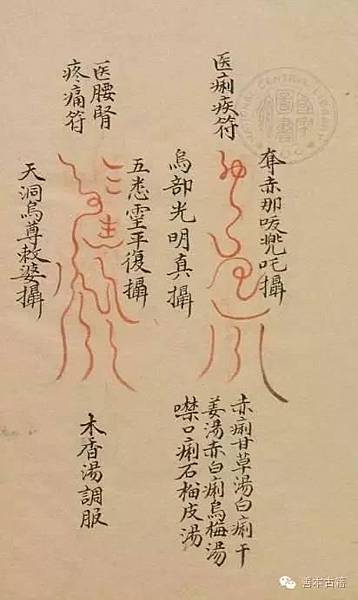 医痢疾符
奪赤那吱兠吒攝
烏部光明真攝
赤痢甘草湯白痢干
姜湯赤白痢烏梅湯
噤口痢石榴皮湯
医腰腎
疼痛符
五悉靈平復攝
天洞烏尊敕婆攝
木香湯調服
NATIONAL CENTRAL LIBRARY
善本古籍